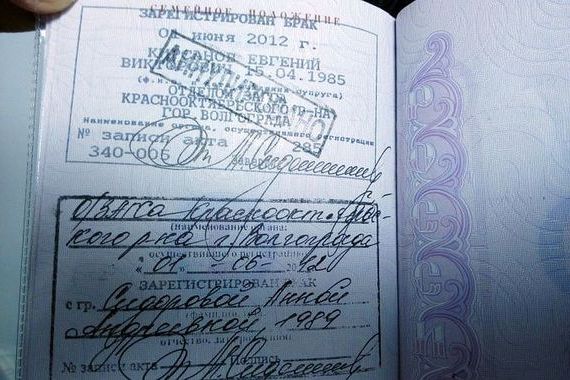 СЕМЕЙНОЕ ПОЛОЖЕНИЕ
ЗАРЕГИСТРИРОВАН БРАК
01 июня 2012 г.
ЕВГЕНИЙ
15.04.1985
ОТДЕЛОМ ЗАГСА
КРАСНООКТЯБРЬСКОГО Р-НА
ГОР. ВОЛГОГРАДА
Наименование органа, осуществившего регистрацию
№ записи акта 285
340-006
О/ЗАГСа Краснооктябрьс-
кого р-на г. Волгограда
(наименование органа,
осуществившего регистрацию)
"01" - 06 - 2012
ЗАРЕГИСТРИРОВАН БРАК
с гр. Сидоровой Анной
Андреевной, 1989
№ записи акта Подпись